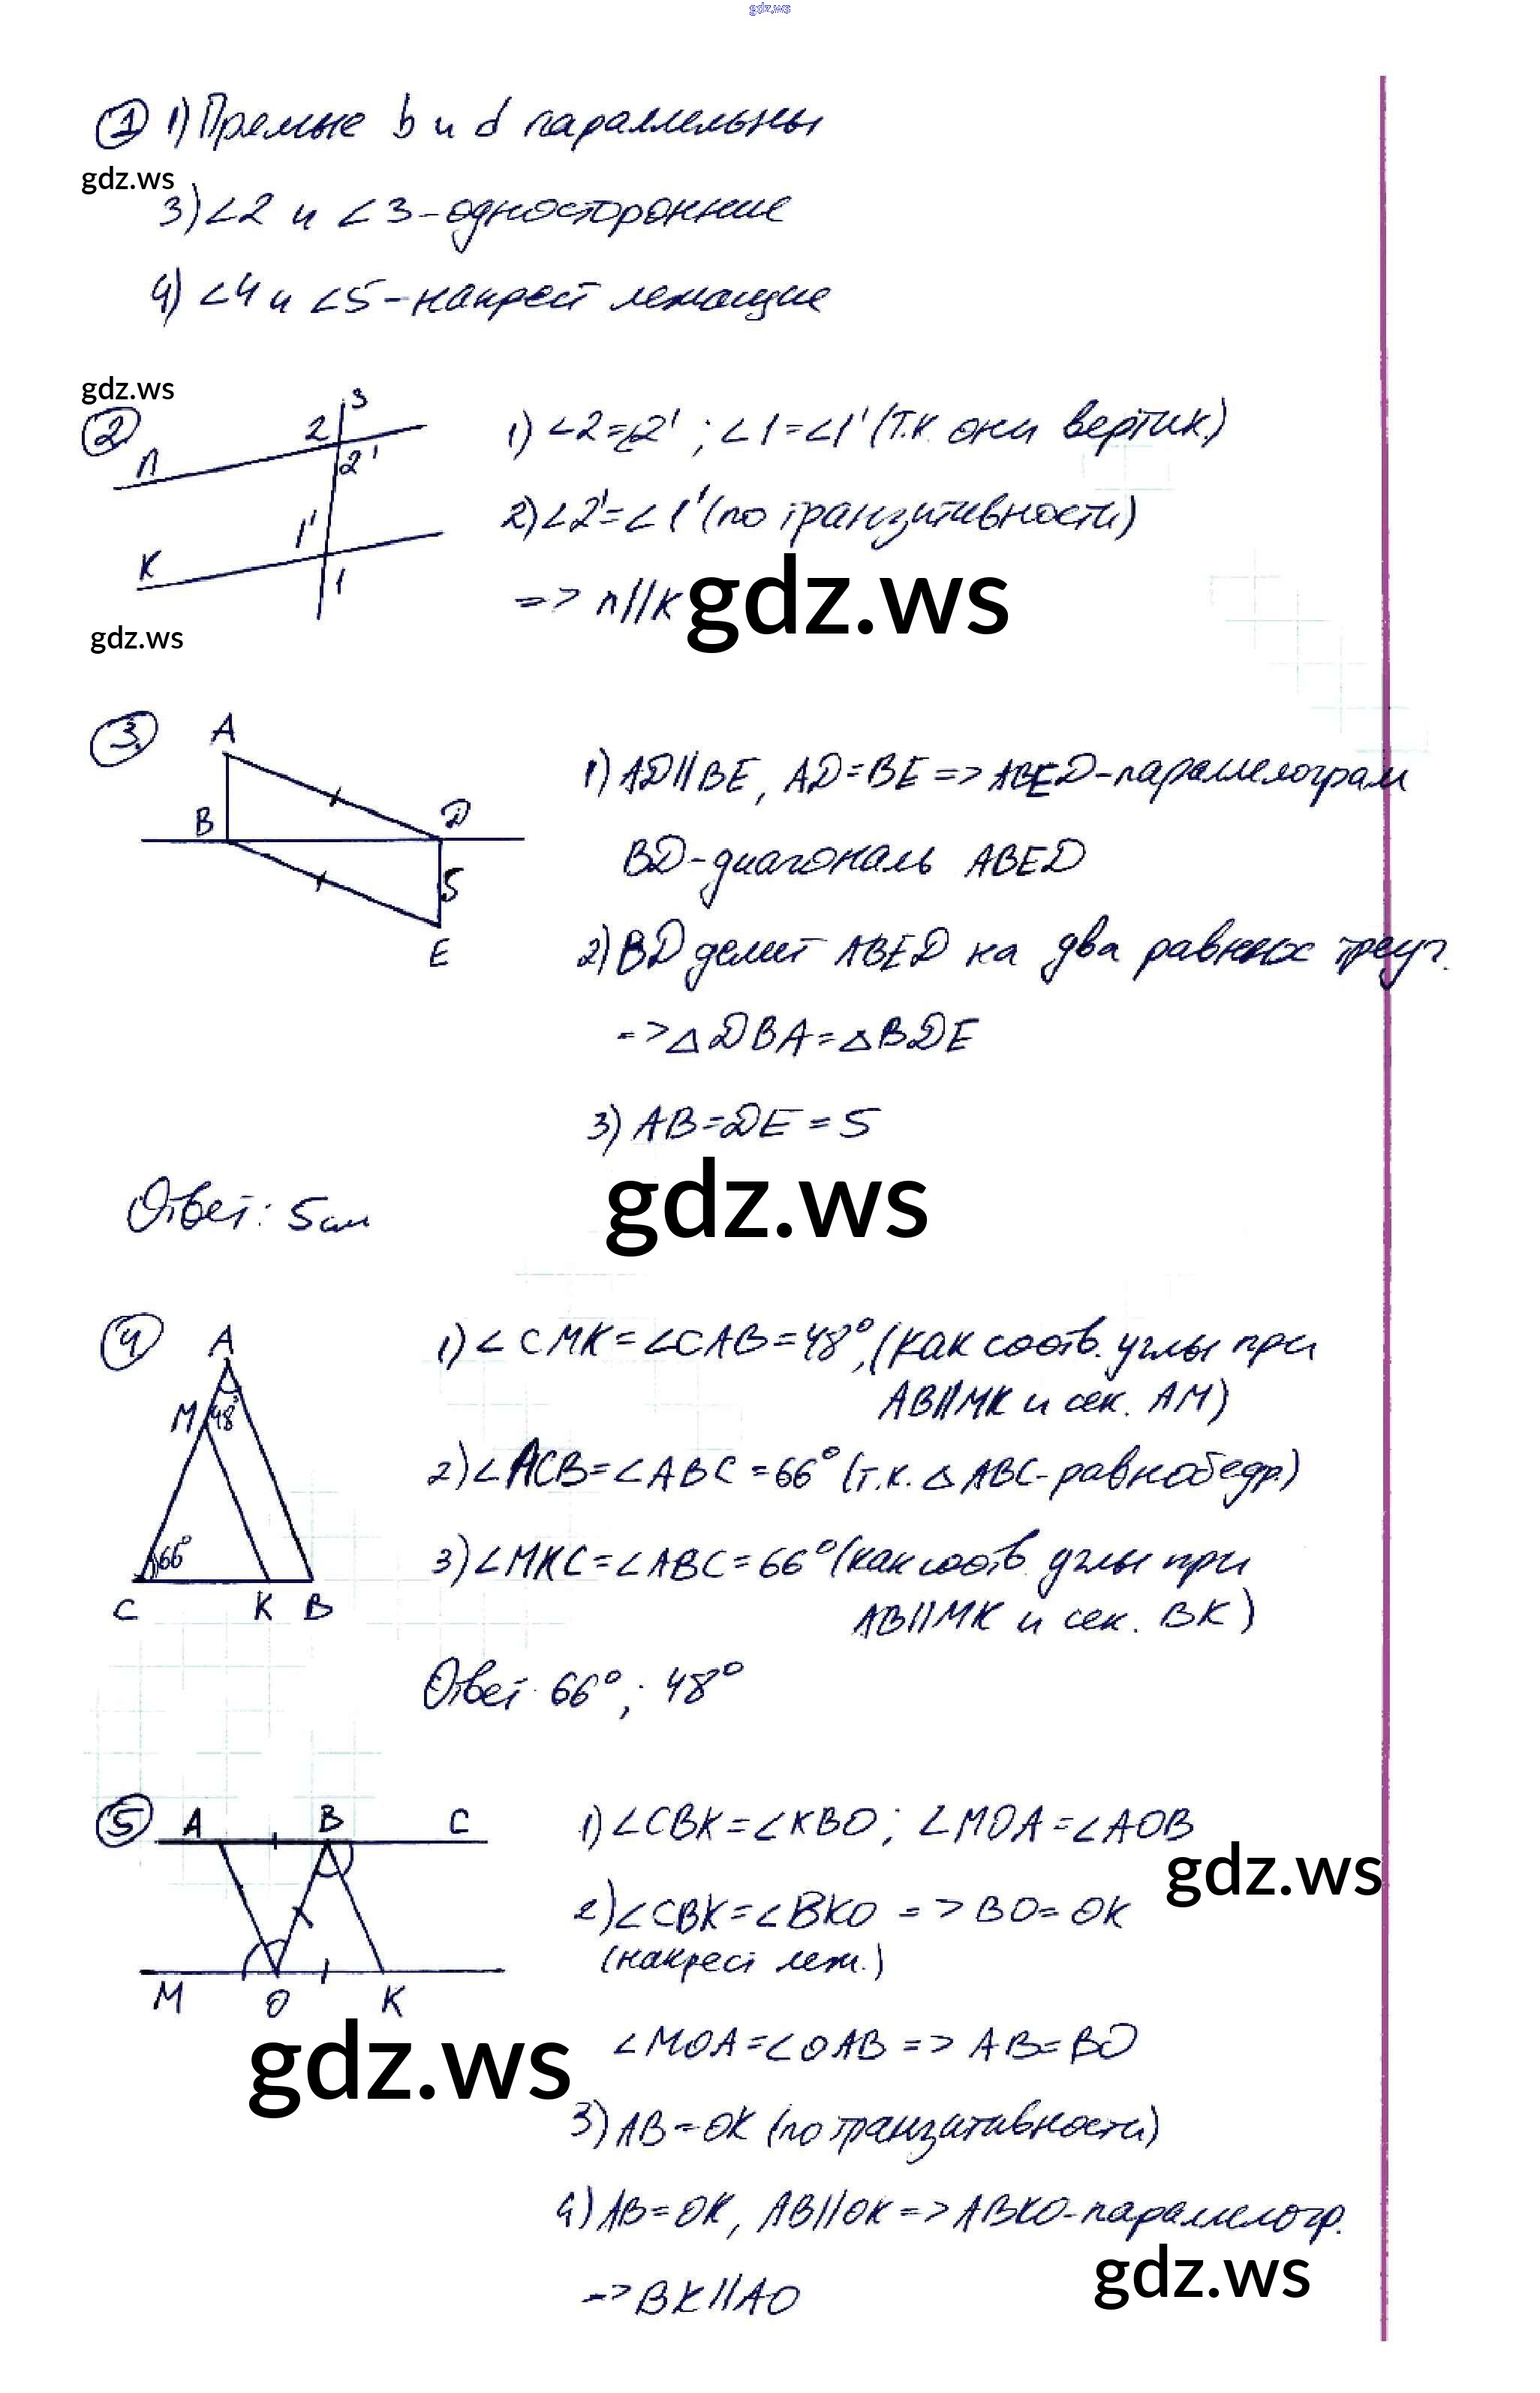 gdz.ws
① 1) Прямые b и d параллельны
gdz.ws
3) ∠2 и ∠3 - односторонние
4) ∠4 и ∠5 - накрест лежащие
gdz.ws
② n 2 3 2' 1' K 1
1) ∠2=∠2' ; ∠1=∠1' (т.к. они вертик.)
2) ∠2'=∠1' (по транзитивности)
=> n//K
gdz.ws
gdz.ws
③ A B D 5 E
1) AD//BE, AD=BE => ABED-параллелограм
BD-диагональ ABED
2) BD делит ABED на два равных треуг.
=> △DBA=△BDE
3) AB=DE=5
gdz.ws
Ответ: 5см
④ A M 48° 66° C K B
1) ∠CMK=∠CAB=48°, (как соотв. углы при
AB//MK и сек. AM)
2) ∠ACB=∠ABC=66° (т.к. △ABC-равнобедр.)
3) ∠MKC=∠ABC=66° (как соотв. углы при
AB//MK и сек. BK)
Ответ 66°; 48°
⑤ A B C M O K
1) ∠CBK=∠KBO; ∠MOA=∠AOB
gdz.ws
2) ∠CBK=∠BKO => BO=OK
(накрест леж.)
gdz.ws
∠MOA=∠OAB => AB=BO
3) AB=OK (по транзитивности)
4) AB=OK, AB//OK => ABKO-параллелогр.
gdz.ws
=> BK//AO